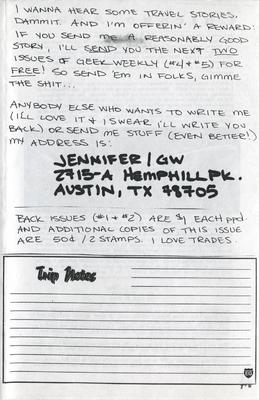 I WANNA HEAR SOME TRAVEL STORIES,
DAMMIT. AND I'M OFFERIN' A REWARD:
IF YOU SEND ME A REASONABLY GOOD
STORY, I'LL SEND YOU THE NEXT TWO
ISSUES OF GEEK WEEKLY (#4 + #5) FOR
FREE! SO SEND 'EM IN FOLKS, GIMME
THE SHIT...
ANYBODY ELSE WHO WANTS TO WRITE ME
(I'LL LOVE IT + I SWEAR I'LL WRITE YOU
BACK) OR SEND ME STUFF (EVEN BETTER!)
MY ADDRESS IS:
JENNIFER/GW
2713-A HEMPHILL PK.
AUSTIN, TX 78705
BACK ISSUES (#1 + #2) ARE $1 EACH ppd.
AND ADDITIONAL COPIES OF THIS ISSUE
ARE 50¢ / 2 STAMPS. I LOVE TRADES.
Trip Notes